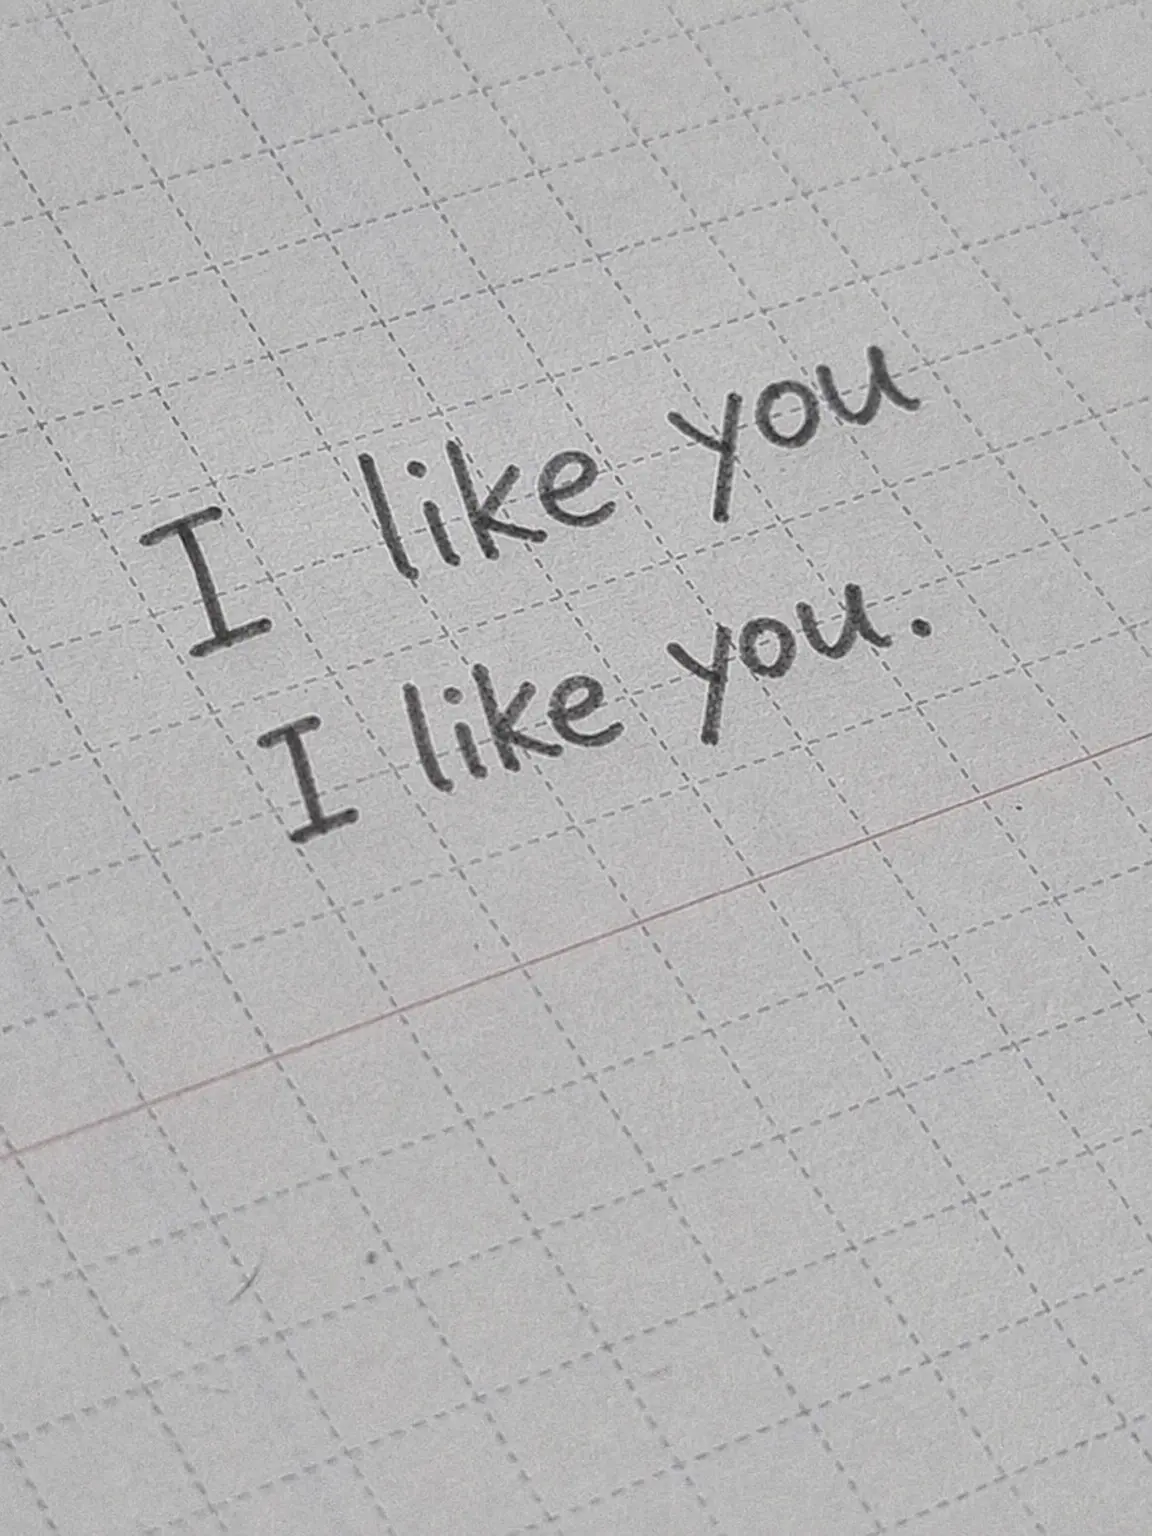 I like you
I like you.